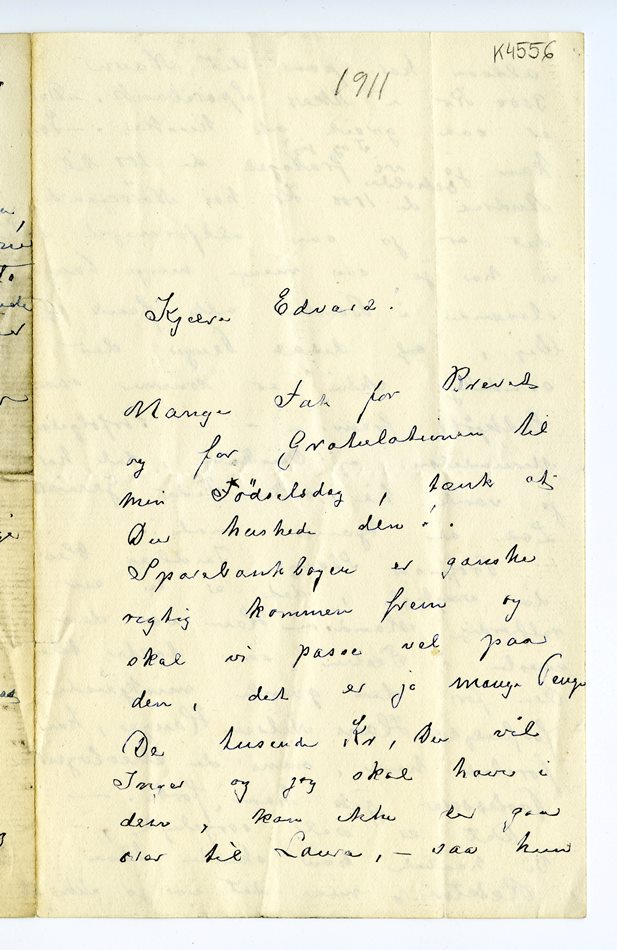 K4556
1911
Kjære Edvard.
Mange Tak for Brevet
og for Gratulationen til
min Födselsdag, tænk at
Du huskede den!.
Sparebankbogen er ganske
rigtig kommen frem og
skal vi passe vel paa
den, det er jo mange Penge
De tusende Kr, Du vil
Inger og jeg skal have i
dem, kan ikke de gaa
over til Laura, – saa hun